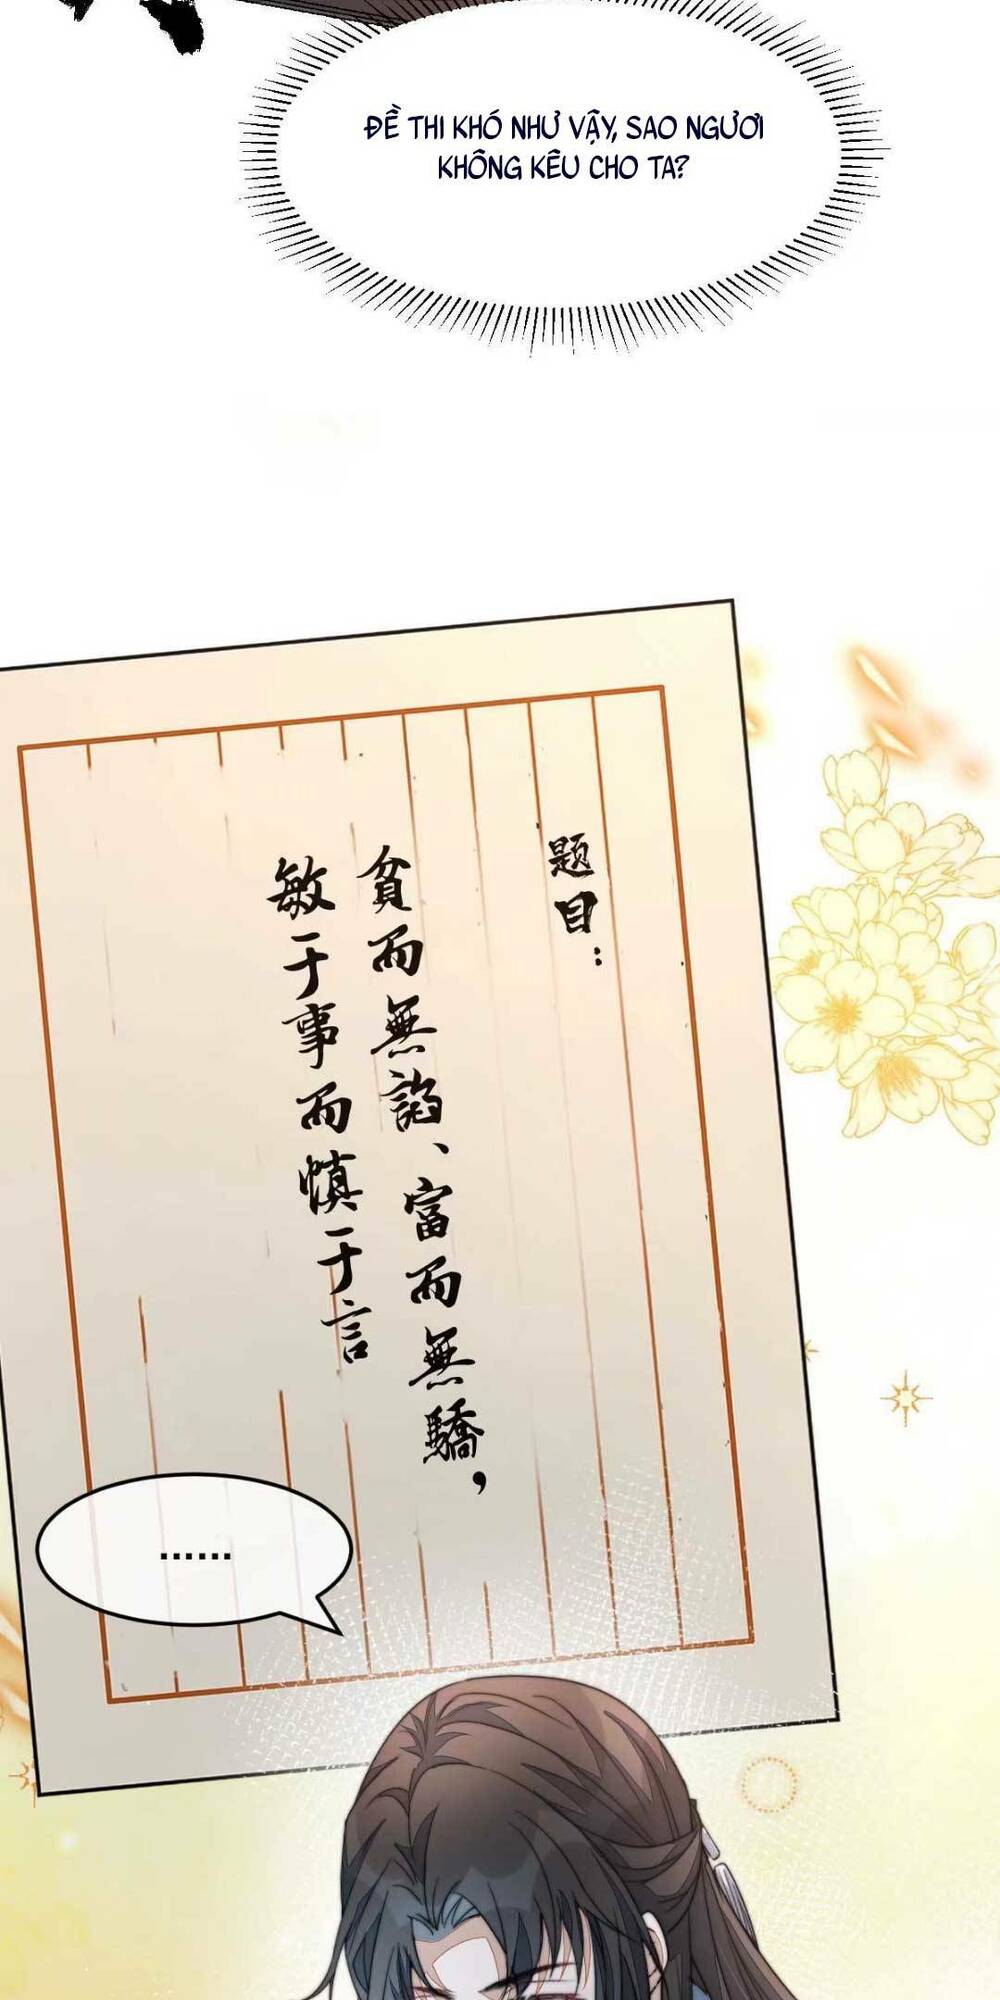 ĐỀ THI KHÓ NHƯ VẬY, SAO NGƯƠI
KHÔNG KÊU CHO TA?
题目：
貧而無諂、富而無驕，
敏于事而慎于言
......